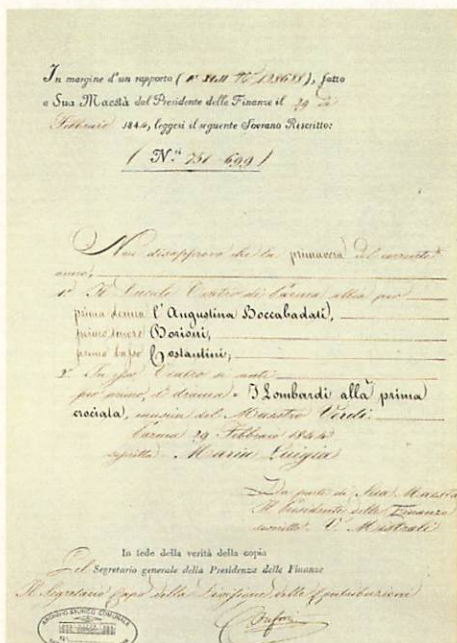 In margine d'un rapporto ( N° 128688 ), fatto
a Sua Maestà dal Presidente delle Finanze il 29 di
Febbraio 1844, leggesi il seguente Sovrano Rescritto:
( N.i 751-699 )
Non disapprovo che la primavera del corrente
anno,
1° Il Ducale Teatro di Parma abbia per
prima donna l'Augustina Boccabadati,
primo tenore Borioni,
primo basso Costantini,
2° In esso Teatro si
per primo, il dramma I Lombardi alla prima
crociata, musica del Maestro Verdi.
Parma 29 Febbraio 1844
Maria Luigia
Da parte di Sua Maestà
Il Presidente delle Finanze
V. Mistrali
In fede della verità della copia
Pel Segretario generale della Presidenza delle Finanze
Il Segretario Capo della Divisione delle Contribuzioni
ARCHIVIO STORICO COMUNALE